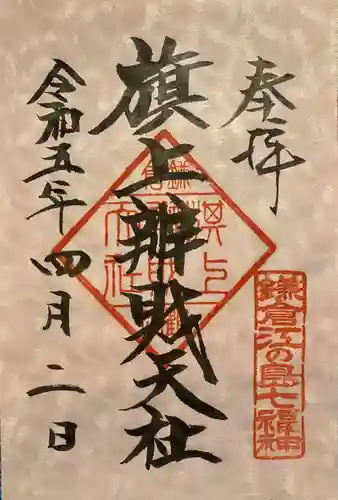 奉拝
旗上辨財天社
令和五年四月二日
鎌倉江の島七福神